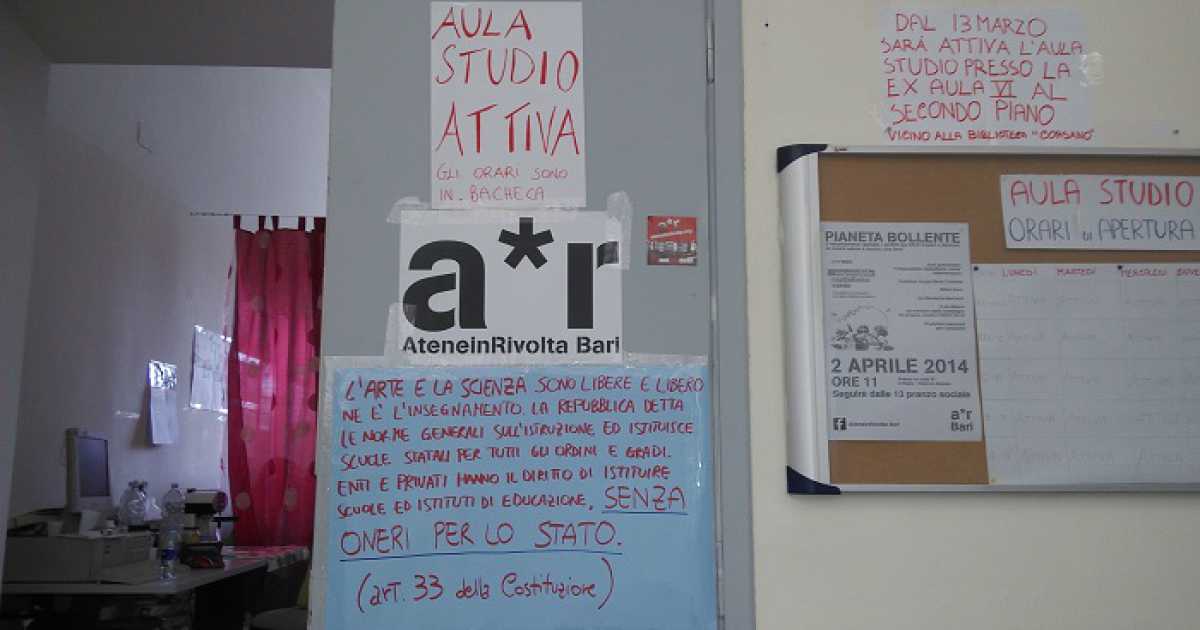 AULA
STUDIO
ATTIVA
GLI ORARI SONO
IN BACHECA
a*r
AteneinRivolta Bari
a*r
L'ARTE E LA SCIENZA SONO LIBERE E LIBERO
NE E' L'INSEGNAMENTO. LA REPUBBLICA DETTA
LE NORME GENERALI SULL'ISTRUZIONE ED ISTITUISCE
SCUOLE STATALI PER TUTTI GLI ORDINI E GRADI.
ENTI E PRIVATI HANNO IL DIRITTO DI ISTITUIRE
SCUOLE ED ISTITUTI DI EDUCAZIONE, SENZA
ONERI PER LO STATO.
(art. 33 della Costituzione)
DAL 13 MARZO
SARÁ ATTIVA L'AULA
STUDIO PRESSO LA
EX AULA VI AL
SECONDO PIANO
"VICINO ALLA BIBLIOTECA "CORSANO"
PIANETA BOLLENTE
2 APRILE 2014
ORE 11
Seguirà dalle 13 pranzo sociale
a*r
Bari
AteneinRivolta Bari
AULA STUDIO
ORARI di APERTURA
LUNEDÌ MARTEDÌ MERCOLEDÌ